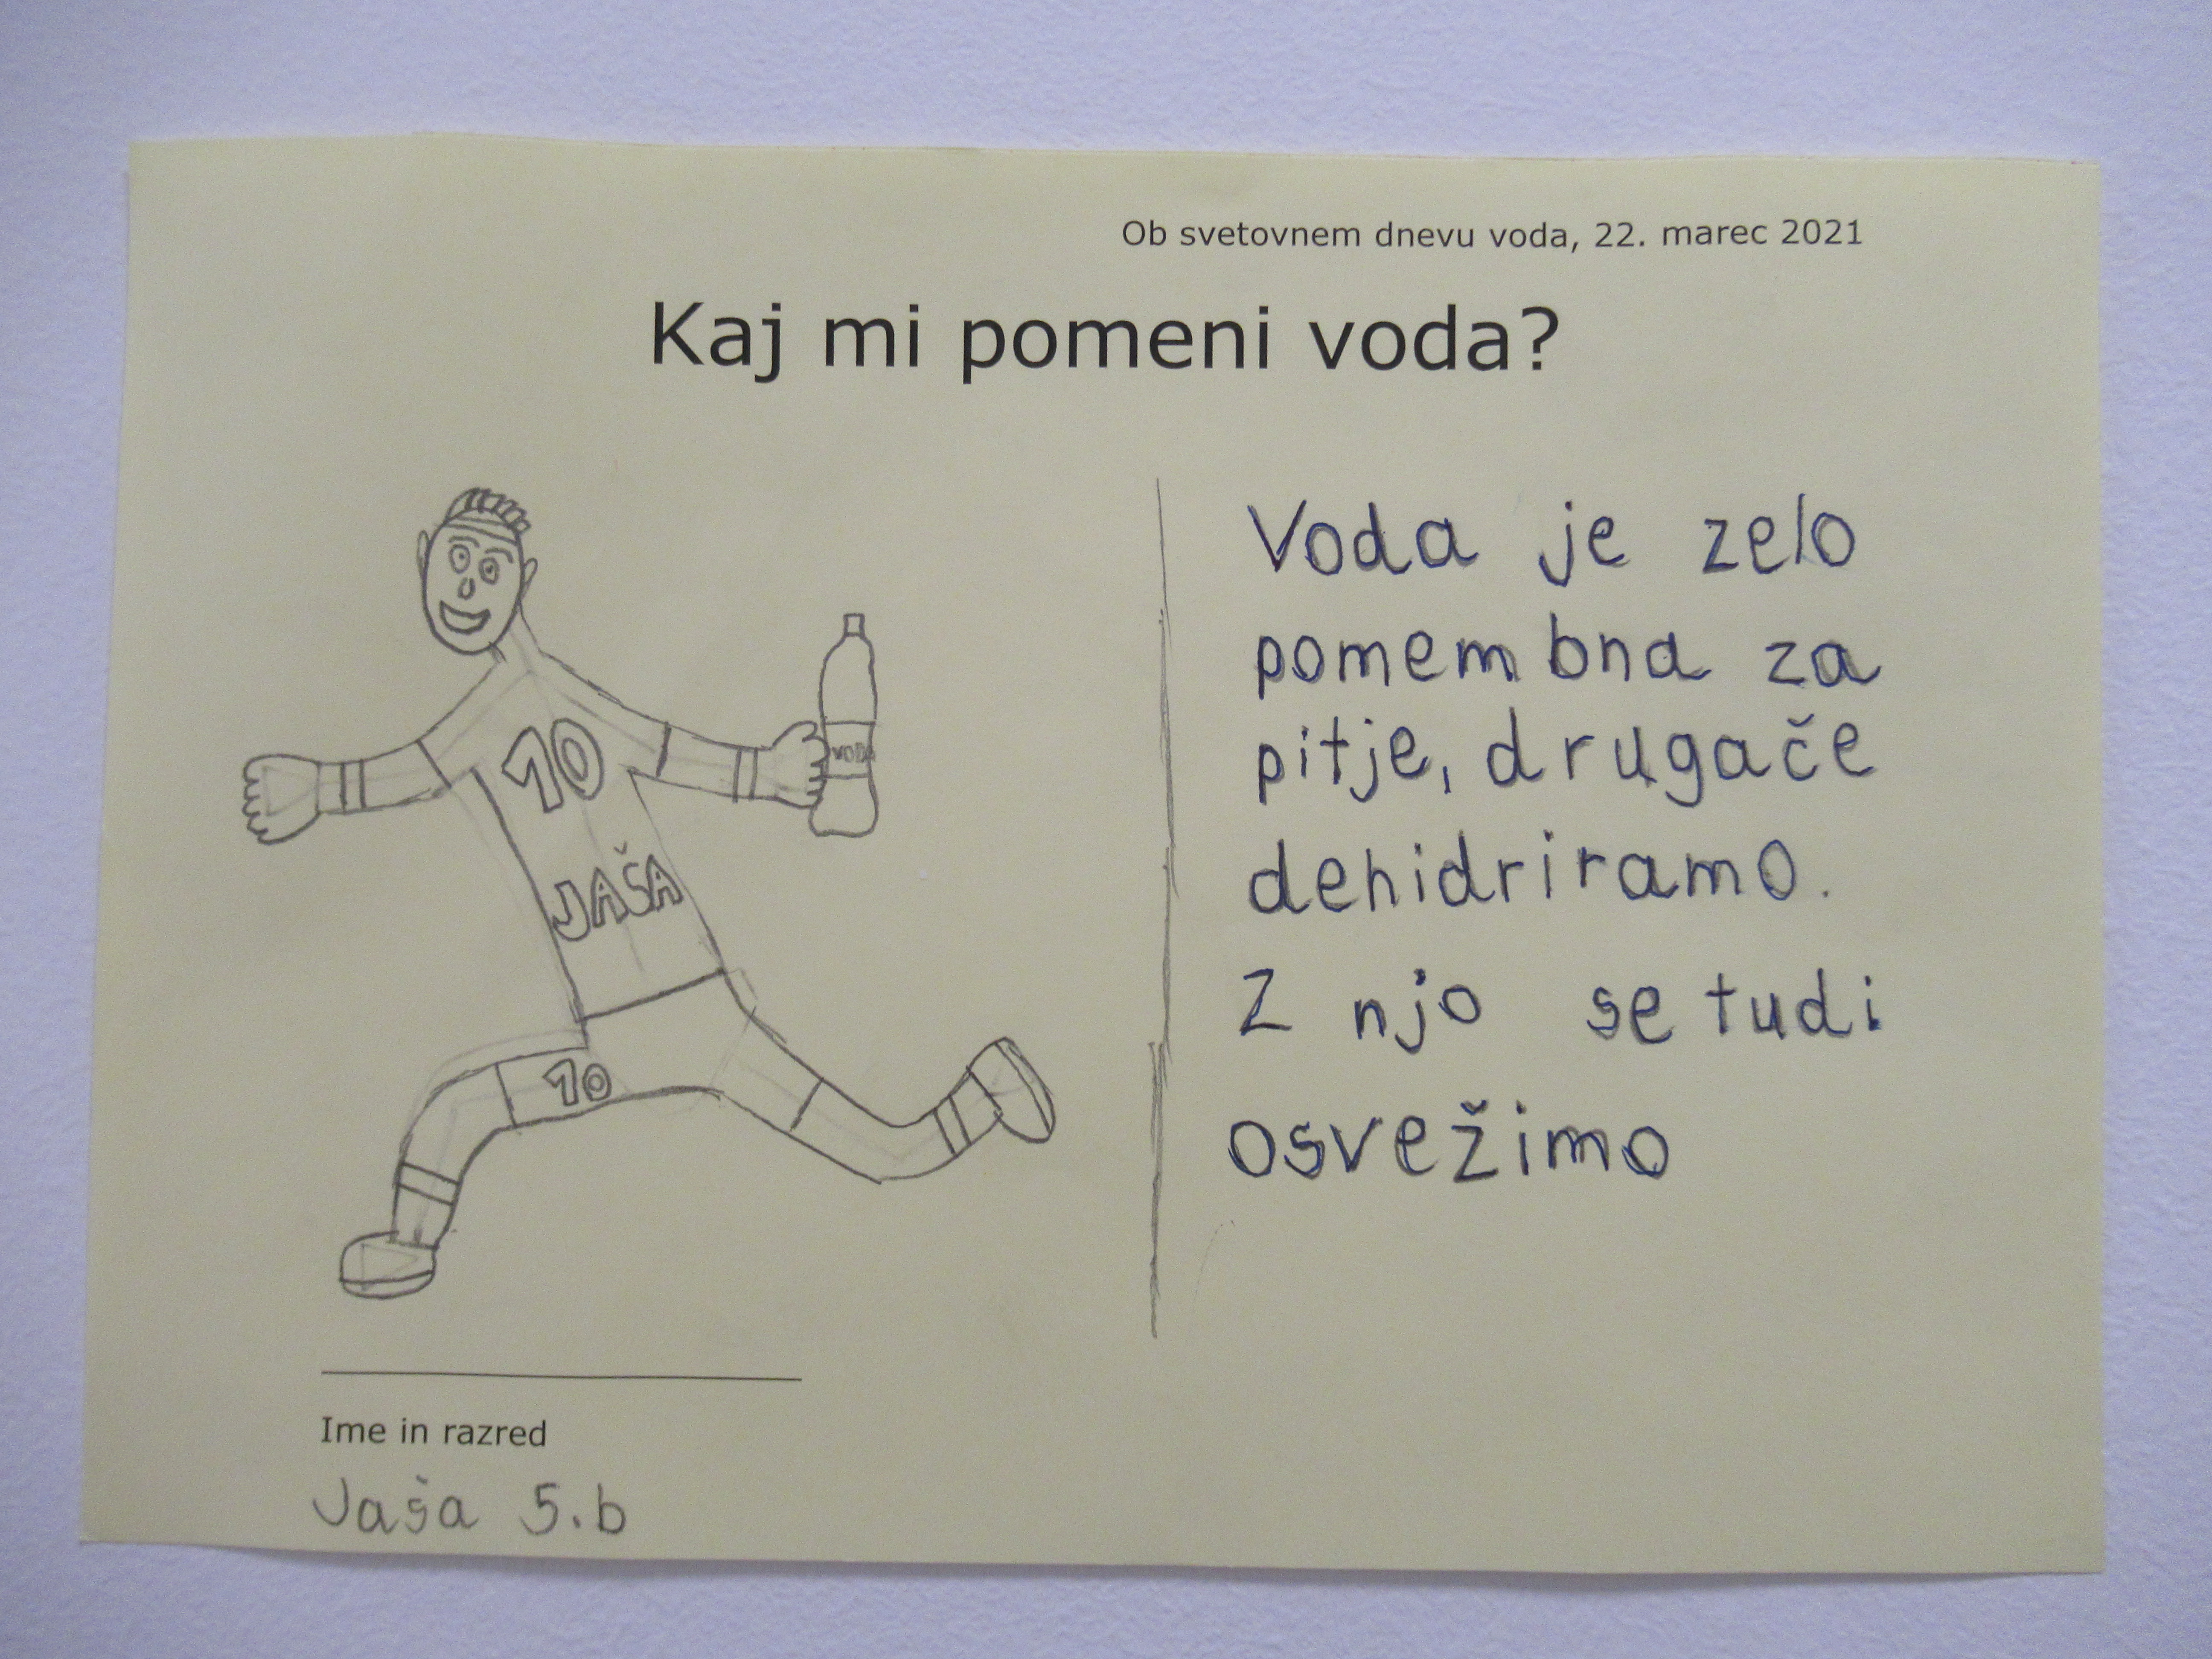 Ob svetovnem dnevu voda, 22. marec 2021
Kaj mi pomeni voda?
10
JAŠA
10
VODA
Voda je zelo
pomembna za
pitje, drugače
dehidriramo.
Z njo se tudi
osvežimo
Ime in razred
Jaša 5.b